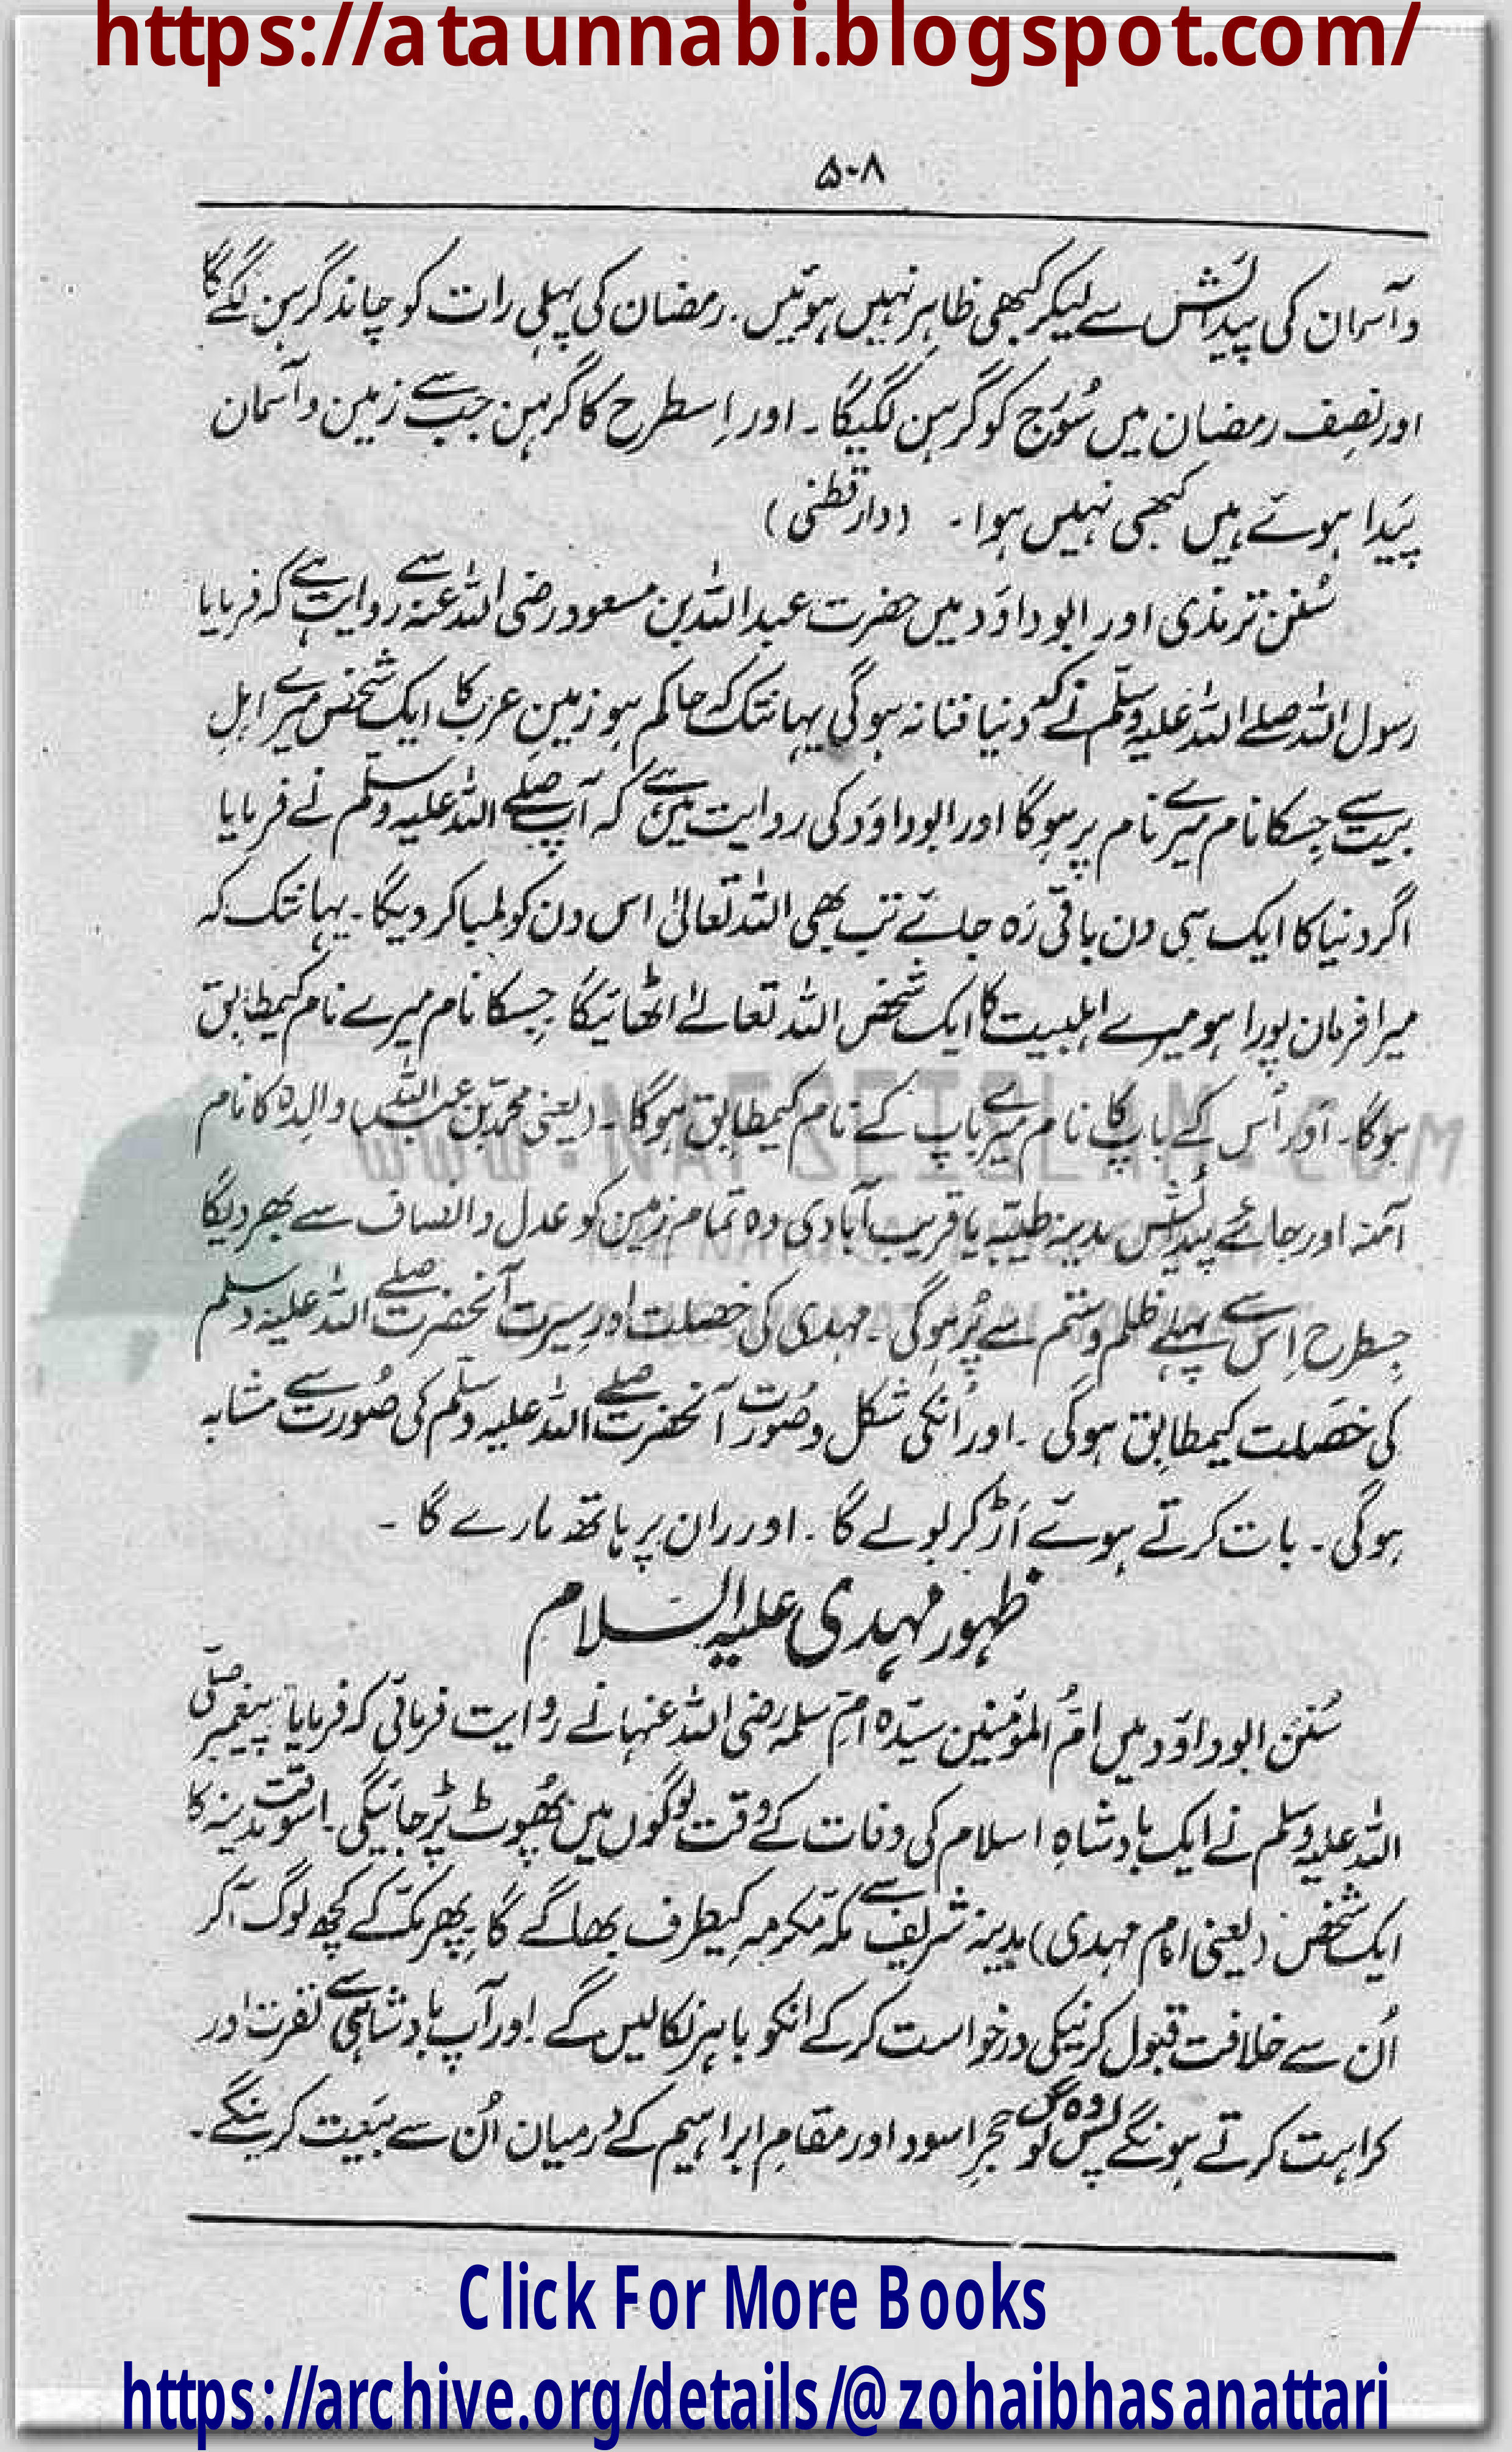 https://ataunnabi.blogspot.com/
۵۰۸
و آسمان کی پیدائش سے لیکر کبھی ظاہر نہیں ہوئیں۔ رمضان کی پہلی رات کو چاند گرہن لگے گا
اور نصِف رمضان میں سُورَج کو گرہن لگیگا۔ اور اِسطرح کا گرہن جب سے زمین و آسمان
پَیدا ہوئے ہیں کبھی نہیں ہوا۔ (دارقطنی)
سُنن ترمذی اور ابوداؤد میں حضرت عبداللہ بن مسعود رضی اللہ عنہ سے روایت ہے کہ فرمایا
رسول اللہ صلے اللہ علیہ وسلّم نے کہ دنیا فنا نہ ہوگی یہانتک کہ حاکم ہو زمین عرب کا ایک شخص میرے اہلِ
بیت سے جسکا نام میرے نام پر ہوگا اور ابوداؤد کی روایت میں ہے کہ آپ صلے اللہ علیہ وسلّم نے فرمایا
اگر دنیا کا ایک ہی دن باقی رَہ جائے تب بھی اللہ تعالیٰ اس دن کو لمبا کر دیگا۔ یہانتک کہ
میرا فرمان پورا ہو میرے اہلبیت کا ایک شخص اللہ تعالےٰ اٹھائیگا جسکا نام میرے نام کیمطابق
ہوگا۔ اَور اُس کے باپ کا نام میرے باپ کے نام کیمطابق ہوگا۔ (یعنی محمد بن عبداللہ) والدہ کا نام
آمنہ اور جائے پیدائش مدینہ طیّبہ یا قریب آبادی وہ تمام زمین کو عدل و انصاف سے بھر دیگا
جسطرح اِس سے پہلے ظلم و ستم سے پُر ہوگی۔ مہدی کی خصلت اور سیرت آنحضرت صلے اللہ علیہ وسلم
کی خصَلت کیمطابق ہوگی۔ اور اُنکی شکل و صُورت آنحضرت صلے اللہ علیہ وسلّم کی صُورت سے مشابہ
ہوگی۔ بات کرتے ہوئے اَڑ کر بولے گا۔ اور ران پر ہاتھ مارے گا۔
ظہور مہدی علیہ السلام
سُنن ابوداؤد میں اُمُّ المؤمنین سیّدہ امِّ سلمہ رضی اللہ عنہا نے روایت فرمائی کہ فرمایا پیغمبر صلّی
اللہ علیہ وسلم نے ایک بادشاہِ اسلام کی وفات کے وقت لوگوں میں پھُوٹ پڑ جائیگی۔ اسوقت مدینہ کا
ایک شخص (یعنی امام مہدی) مدینہ شریف سے مکّہ مکرمہ کیطرف بھاگے گا پھر مکّے کے کچھ لوگ آکر
اُن سے خلافت قبول کرنیکی درخواست کر کے انکو باہر نکالیں گے اور آپ بادشاہی سے نفرت اور
کراہت کرتے ہونگے پس وہ لوگ حجرِ اسود اور مقامِ ابراہیم کے درمیان اُن سے بیَعت کرینگے۔
Click For More Books
https://archive.org/details/@zohaibhasanattari